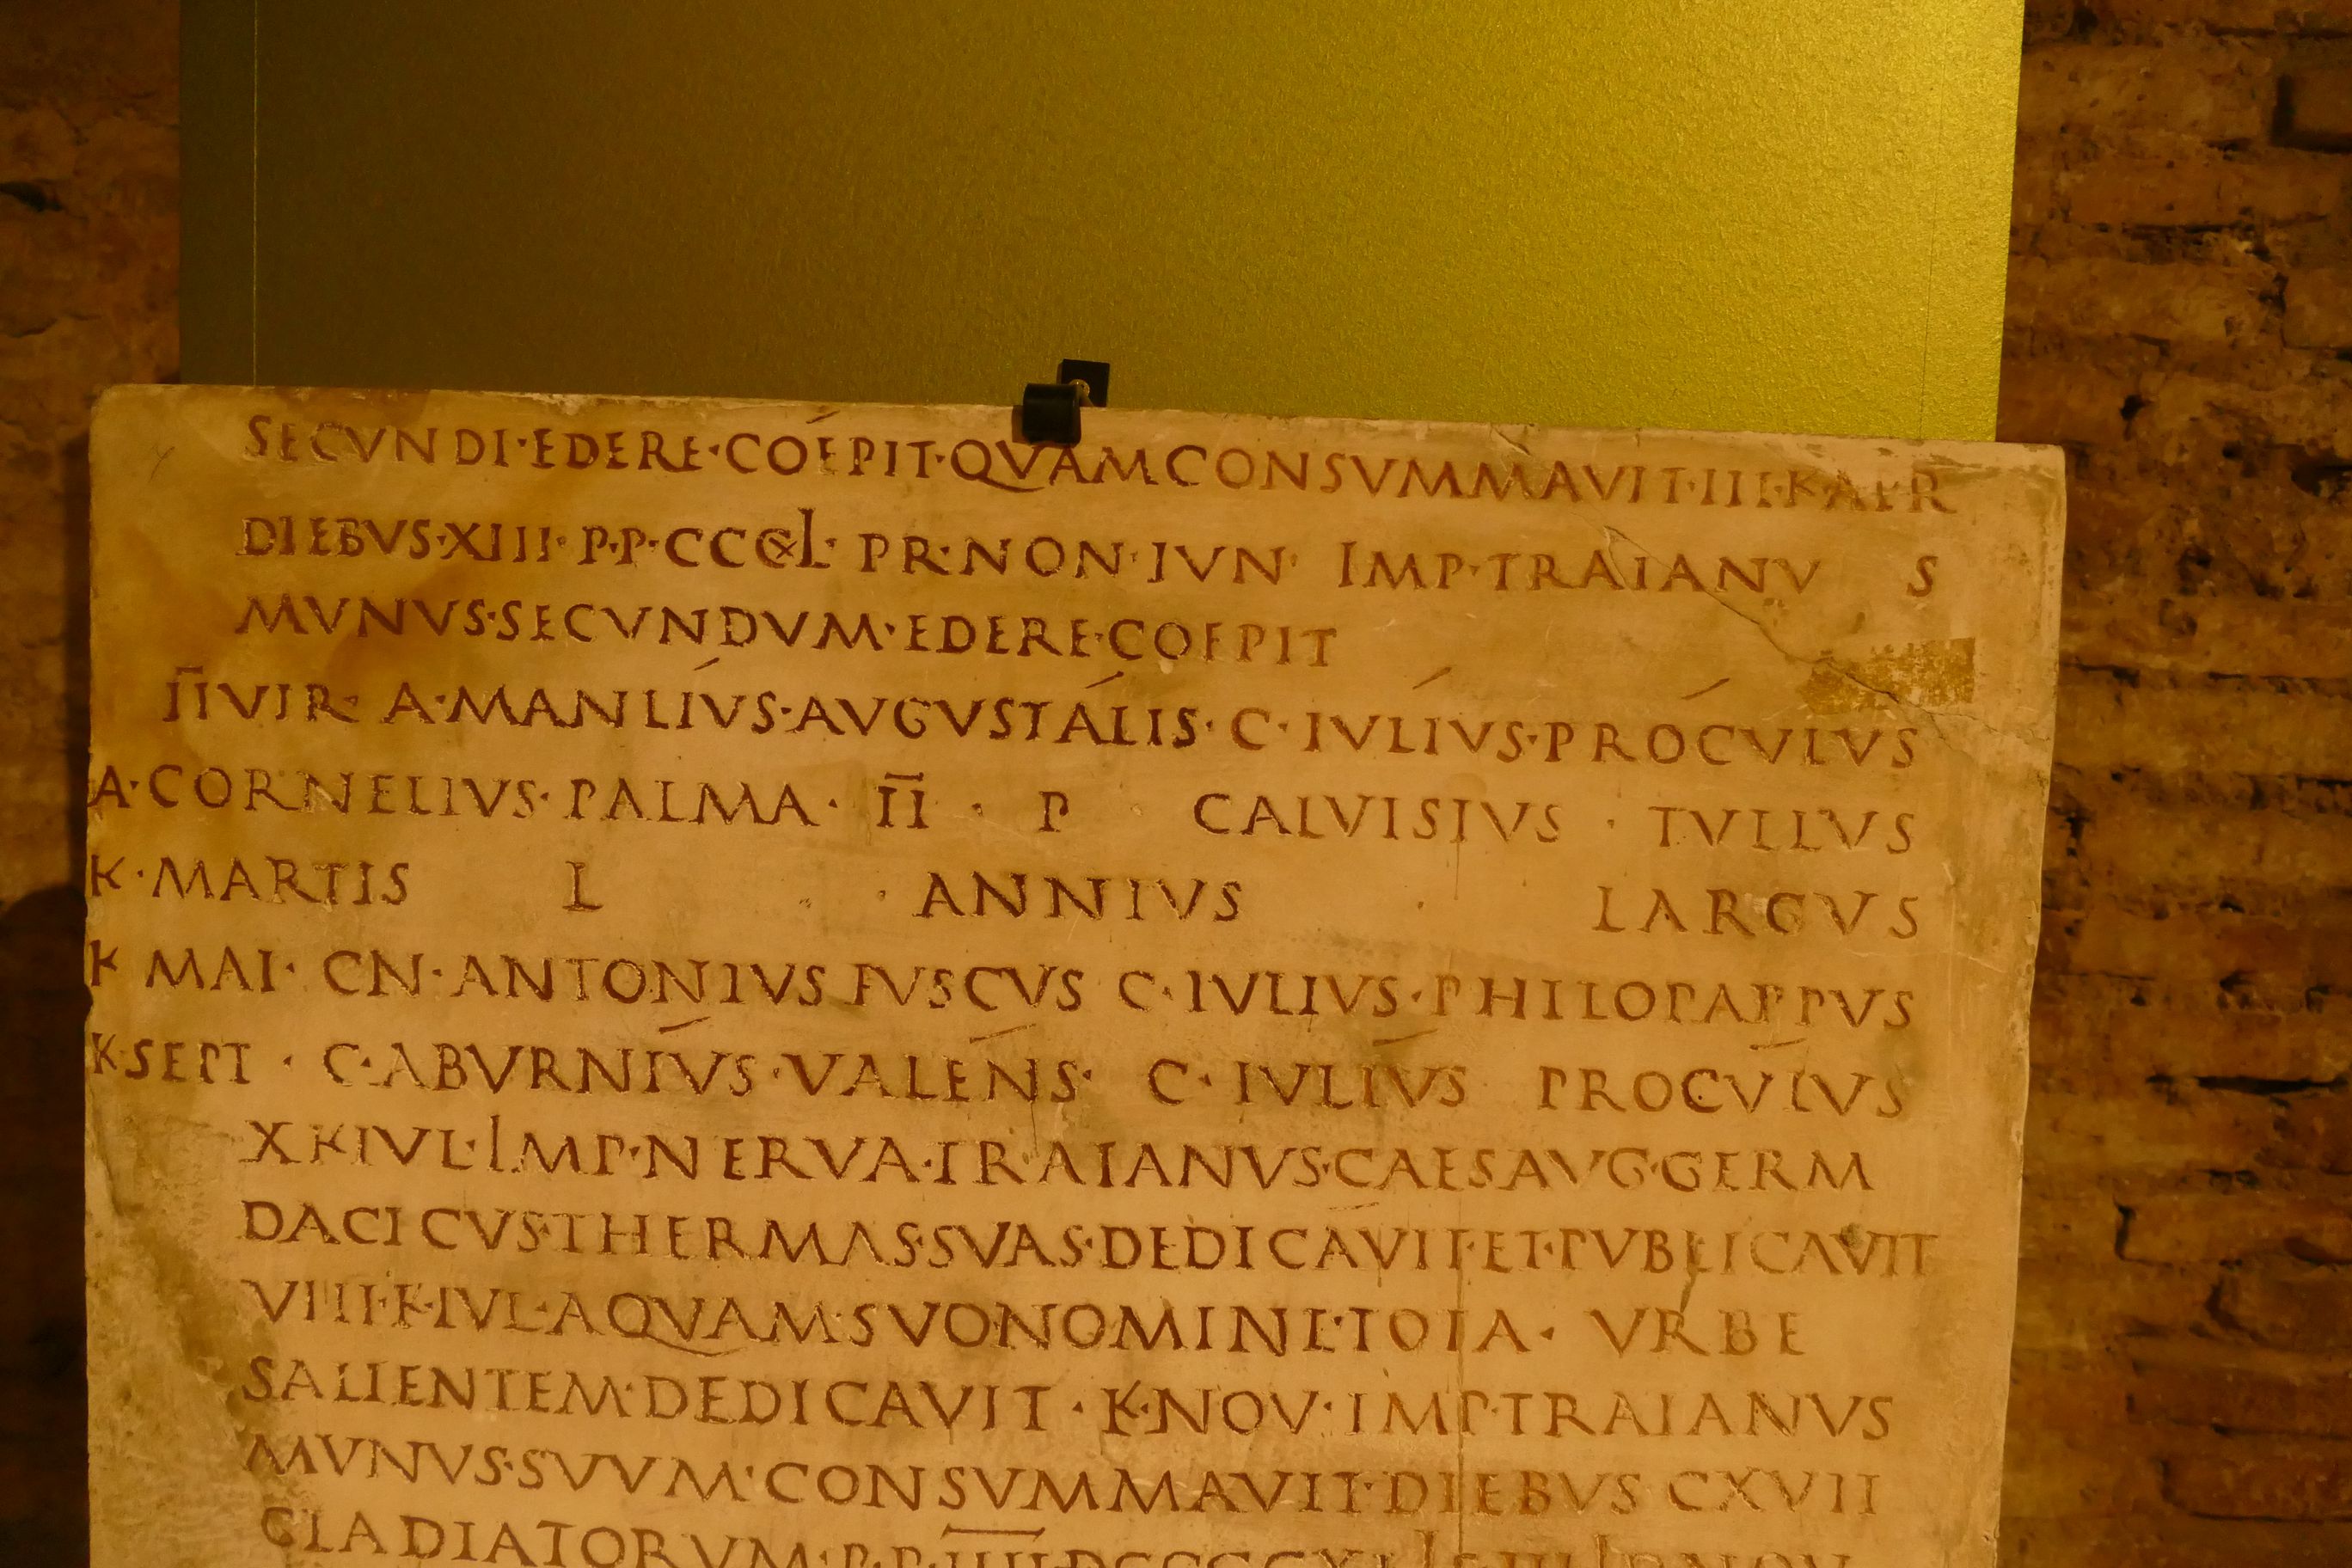 SECVNDI·EDERE·COÉPIT·QVAM CONSVMMAVIT·III·K·APR
DIEBVS·XIII·P·P·CCCↃL· PR·NON·IVN· IMP·TRAIANV S
MVNVS·SECVNDVM·EDERE·COEPIT
I̅I̅VIR· A·MANLÍVS·AVGVSTÁLIS· C·IVLÍVS·PRÓCVLVS
A·CORNELIVS·PALMA· I̅I̅ · P · CALVISIVS · TVLLVS
K·MARTIS L · ANNIVS · LARGVS
K MAI· CN·ANTONIVS FVSCVS C·IVLIVS·PHILOPAPPVS
K·SEPT · C·ABVRNÍVS·VALÉNS· C·IVLÍVS PROCVLVS
X K IVL·IMP·NERVA·TRAIANVS·CAES AVG·GERM
DACICVS·THERMAS·SVAS·DEDICÁVIT·ET·PVBLICAVIT
VIIII·K·IVL·AQVAM·SVO NOMINE·TOTA· VRBE
SALIENTEM·DEDICAVIT · K·NOV·IMP·TRAIANVS
MVNVS·SVVM·CONSVMMAVIT·DIEBVS CXVII
GLADIATORVM·P·P·